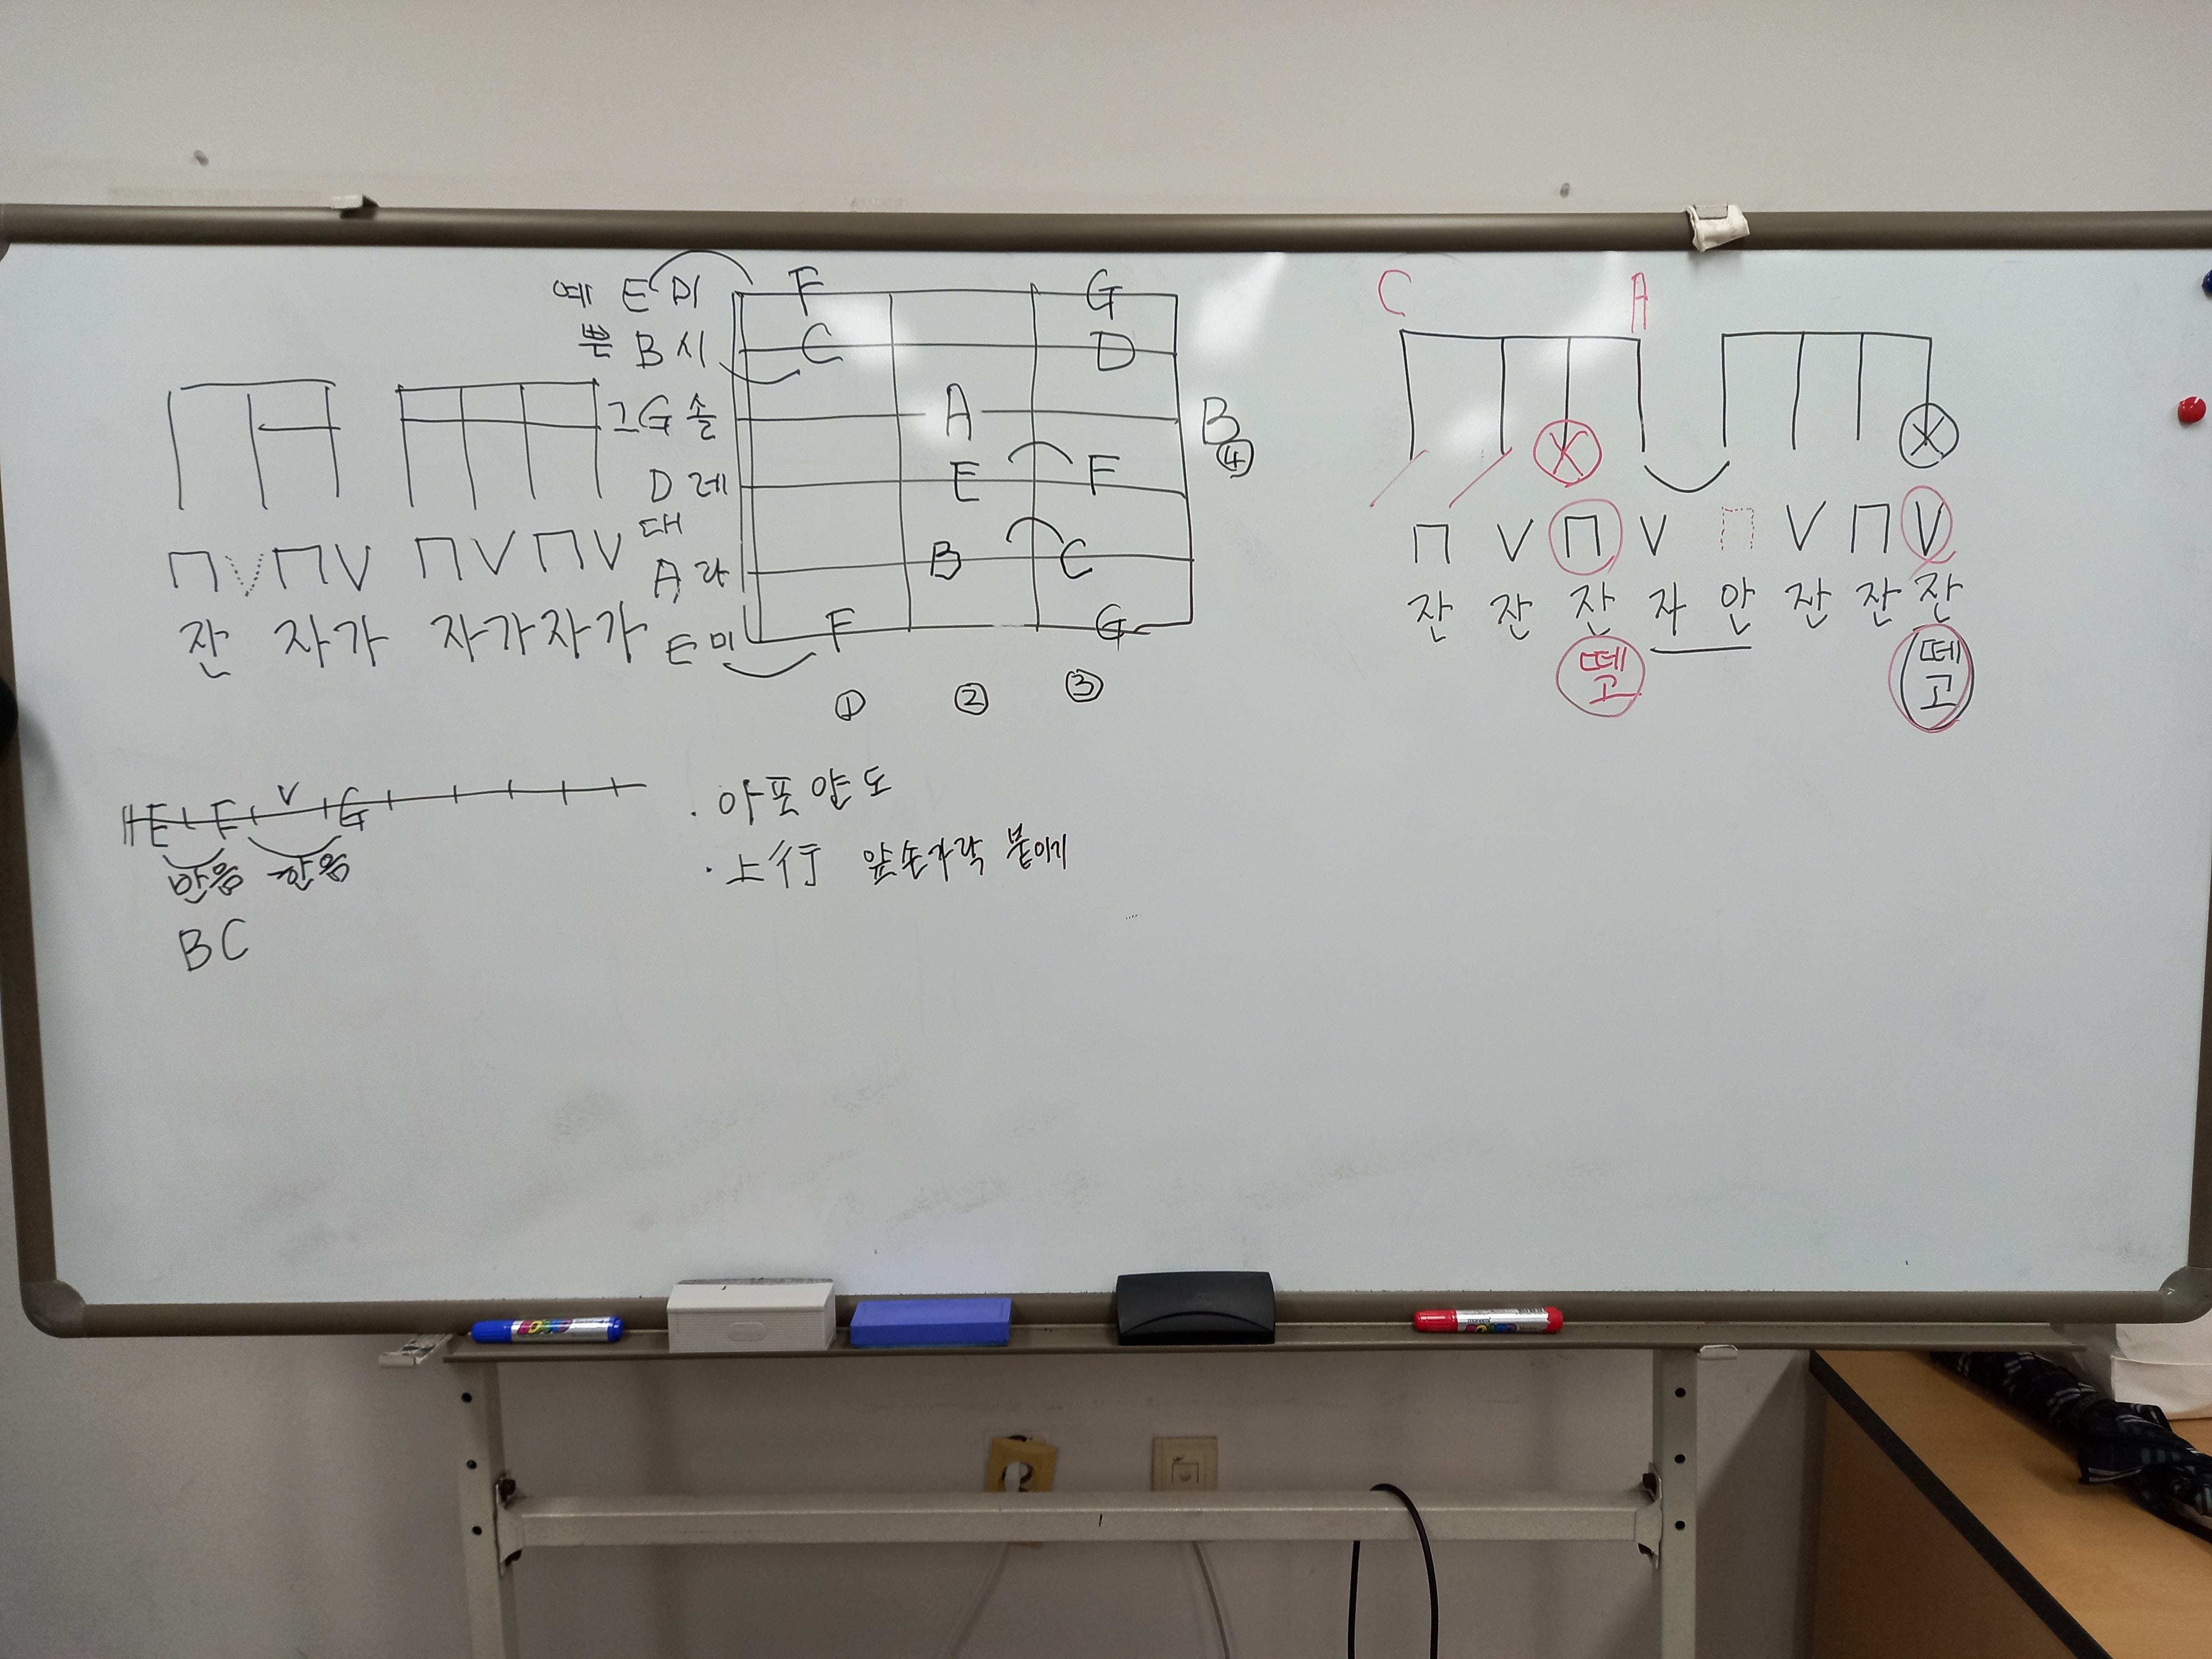 예 E 미 F G
쁜 B 시 C D
그 G 솔 A B ④
D 레 E F
대
A 라 B C
E 미 F G
① ② ③
⊓ V ⊓ V ⊓ V ⊓ V
잔 자가 자가자가
C A
X X
⊓ V ⊓ V ⊓ V ⊓ V
잔 잔 잔 자 안 잔 잔 잔
떼고 떼고
E F V G
반음 한음
B C
· 아포얀도
· 上行 앞손가락 붙이기